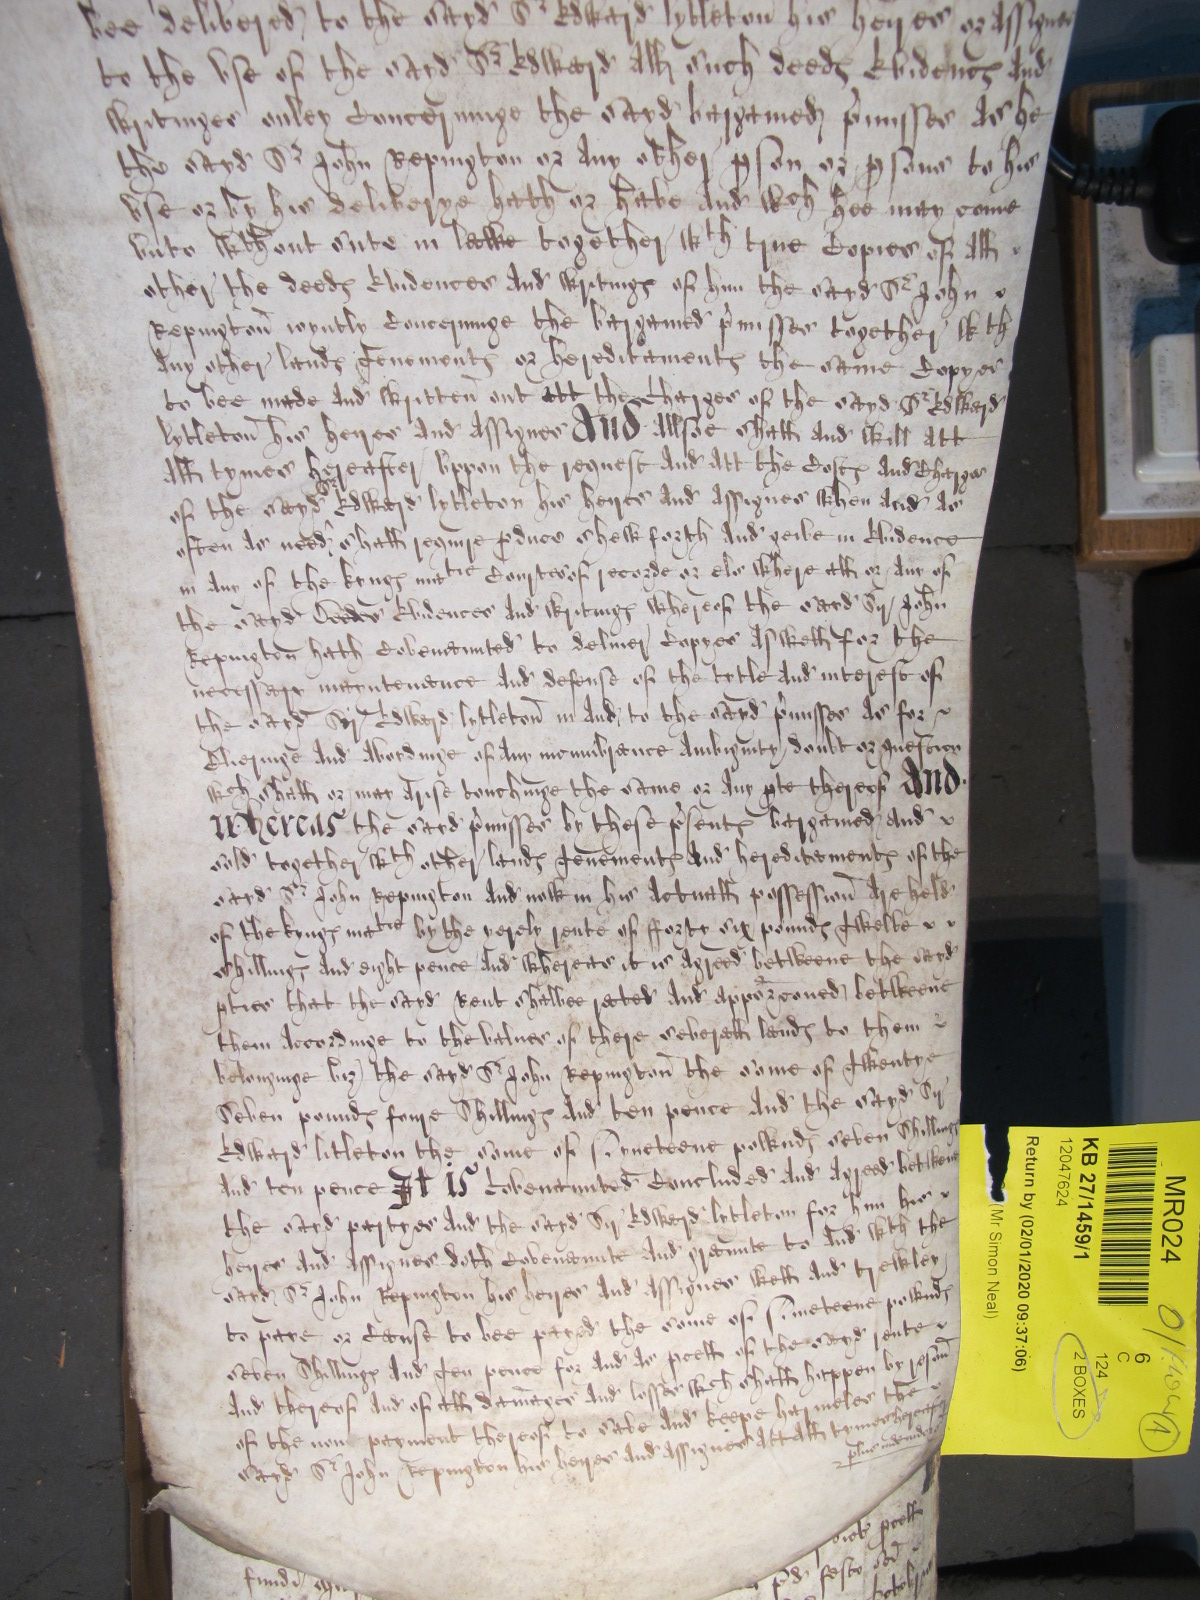 bee delivered to the sayd Sr Edward lytleton his heyres or assignes
to the use of the sayd Sr Edward All such deeds Evidencs And
writinges onley Concerninge the sayd bargained pmisses As he
the sayd Sr John Repington or Any other pson or psons to his
use or by his deliverye hath or have And wch hee may come
unto wthout sute in lawe together wth true Copies of All
other the deeds Evidences And writings of him the sayd Sr John
Repington ioyntly Concerninge the bargained pmisses together wth
Any other lands Tenements or hereditaments the same Copyes
to bee made And written out att the Charges of the sayd Sr Edward
lytleton his heyres And Assignes And Allsoe shall And will Att
All tymes hereafter uppon the request And att the Costs And Charges
of the sayd Sr Edward lytleton his heyres And Assignes when And As
often As need shall require pduce shew forth And geive in Evidence
in Any of the kyngs matie Courtes of recorde or els where all or Any of
the sayd Deedes Evidences And writings whereof the sayd Syr John
Repington hath Covenanted to deliver Copyes As well for the
necessary mayntenance And defense of the tytle And interest of
the sayd Syr Edward lytleton in And to the sayd pmisses As for
Cleringe And Avordinge of Any incumbrance Ambiguity doubt or question
wch shall or may Arise touchinge the same or Any pte thereof And
whereas the sayd pmisses by these psents bargained And
sold together wth other lands Tenements And hereditaments of the
sayd Sr John Repington And now in his Actuall possession Are held
of the kyngs matie by the yerely rente of fforty six pounds Twelve
shillings And eight pence And whereas it is Agreed betweene the sayd
pties that the sayd Rent shalbee rated And apporconed betweene
them Accordinge to the values of there severall lands to them
belonginge viz the sayd Sr John Repington the some of Twentye
Seven pounds foure Shillings And ten pence And the sayd Syr
Edward litleton the some of Nyneteene pownds seven Shillings
And ten pence It is Covenanted Concluded And Agreed betweene
the sayd partyes And the sayd Syr Edward lytleton for him his
heyres And Assignes doth Covenante And graunte to And wth the
sayd Sr John Repington his heyres And Assignes well And trewley
to paye or Cause to bee payed the some of Nineteene pownds
seven Shillings And Ten pence for And As pcell of the sayd rente
And thereof And of all damages And losses wch shall happen by reson
of the non payment thereof to save And keepe harmeles the
sayd Sr John Repington his heyres And Assignes Att All tymes hereafter
plus indendo
pcell
fundi
pd festo
MR024
KB 27/1459/1
12047624
6
C
124
2 BOXES
1
Return by (02/01/2020 09:37:06)
(Mr Simon Neal)